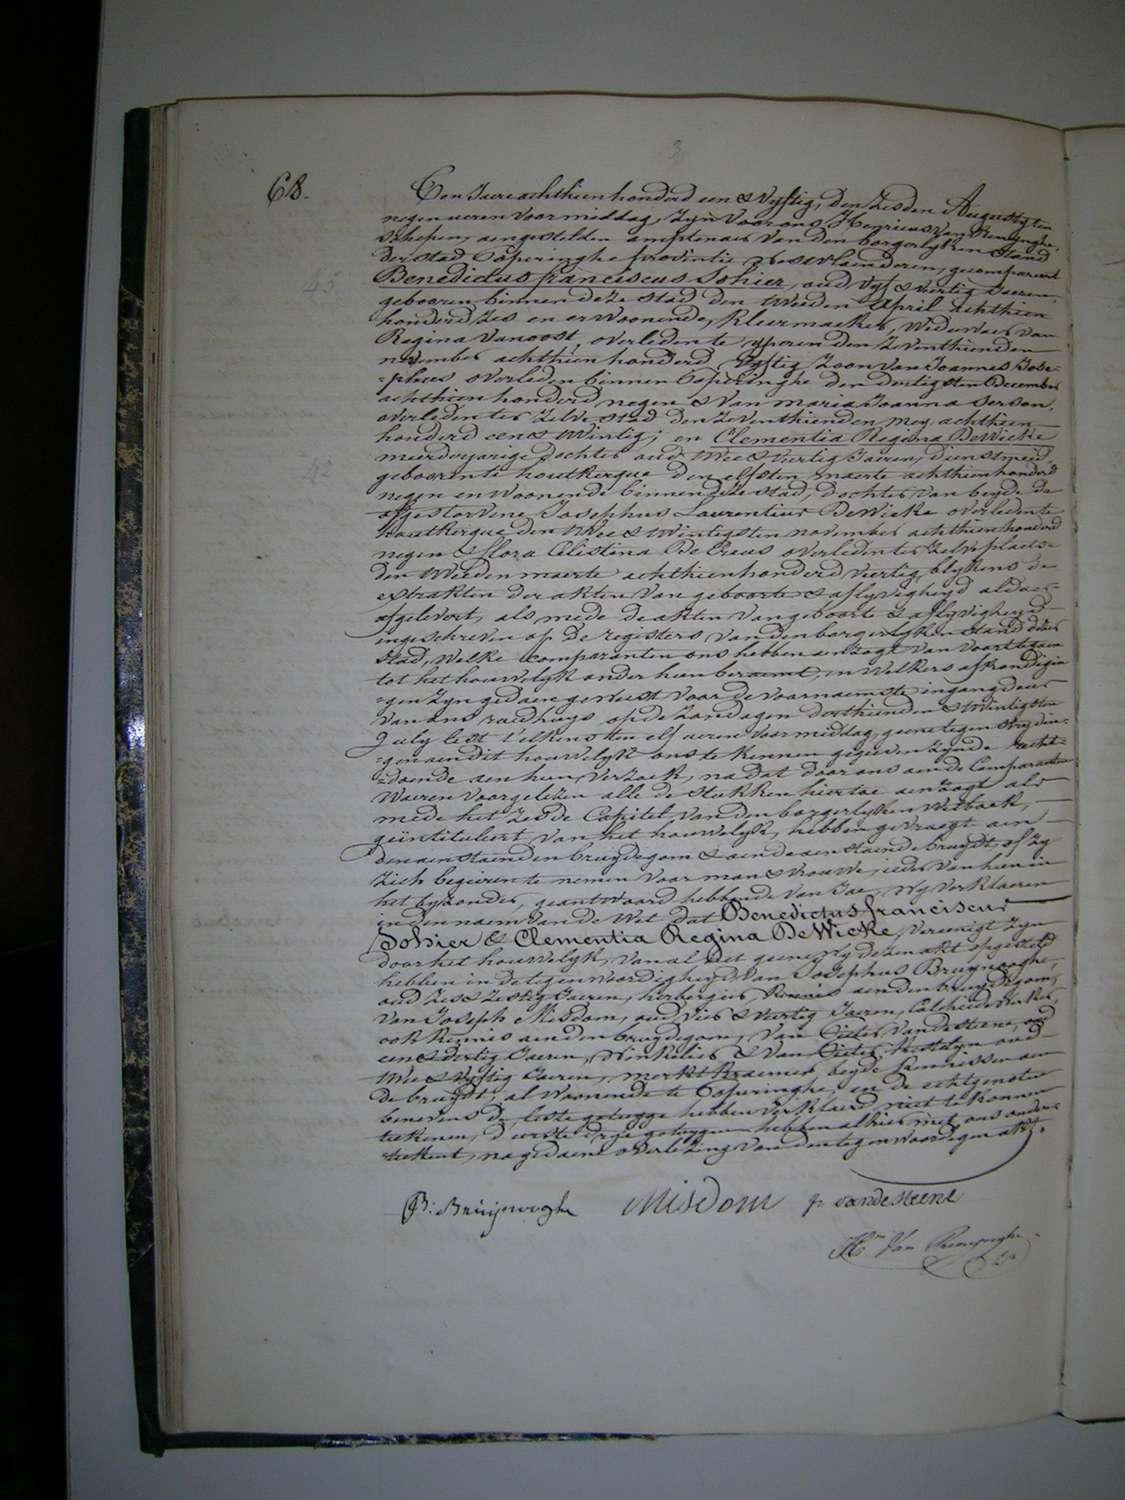 3
68.
Den Jaere achthien honderd een & vyftig, den zesden Augusty ten
negen ueren voormiddag, zyn voor ons Henricus Van Renynghe,
schepen, aengestelden amptenaer van den borgerlyken stand
der stad Poperinghe provintie Westvlaenderen, gecompareert
Benedictus franciscus Sohier, oud vyf & veertig Jaeren,
gebooren binnen deze stad den tweeden April achthien
honderd zes en er woonende, kleermaeker, weduwaer van
Regina Vanoost, overleden te yperen den zeventhienden
november achthien honderd vyftig, zoon van Joannes Jose-
=phus overleden binnen Poperinghe den dertigsten december
achthien honderd negen & van maria Joanna Serson,
overleden ter zelve stad den zeventhienden mey achthien
honderd een & twintig; en Clementia Regina De Wicke
meerderjarige dochter oud twee & veertig Jaeren, dienstmeid,
gebooren te houtkerque den elfsten maerte achthien honderd
negen en woonende binnen deze stad, dochter van beyde de
afgestorvene Josephus Laurentius De Wicke overleden te
houtkerque den twee & twintigsten november achthien honderd
negen & flora Celistina De Creus overleden ter zelve plaets
den tweeden maerte achthien honderd veertig, blykens de
extrakten der akten van geboorte & aflyvigheyd aldaer
afgelevert, als mede de akten van geboorte & aflyvigheyd
ingeschreven op de registers van den borgerlyken stand dezer
stad, Welke comparanten ons hebben aenzogt van voorttegaen
tot het houwelyk onder hun beraemt, en welkers afkondigin
=gen zyn gedaen geweest voor de voornaemste ingang deur
van ons raedhuys op de zondagen derthienden & twintigsten
July lest telkens ten elf ueren voormiddag, geene tegenstrydin-
=gen aen dit houwelyk ons te kennen gegeven zynde recht-
=doende aen hun verzoek, na dat door ons aen de Comparanten
waeren voorgelezen alle de stukken hiertoe aenzogt als
mede het zesde Capitel van den borgerlyken Wetboek,
geintituleert van het houwelyk, hebben gevraegt aen
den aenstaenden bruydegom & aen de aenstaende bruydt of zy
zich begeeren te nemen voor man & vrouwe, ieder van hun in
het byzonder, geantwoord hebbende van Jae, Wy verklaeren
in den naem van de Wet dat Benedictus franciscus
Sohier & Clementia Regina De Wicke, vereenigt zyn
door het houwelyk, van al het geene wy dezen akt opgesteld
hebben in de tegenwoordigheyd van Josephus Bruynooghe,
oud zes & zestig Jaeren, herbergier, kennis aen den bruydegom,
van Joseph Misdom, oud vier & veertig Jaeren,
ook kennis aen den bruydegom, van Pieter Vandesteene, oud
een & dertig Jaeren, winkelier & van Pieter oud
twee & vyftig Jaeren, merktkraemer beyde kennissen aen
de bruydt, al woonende te Poperinghe, en de echtgenoten
benevens de leste getuyge hebben verklaerd niet te konnen
teekenen, d'eerste drye getuygen hebben alhier met ons onder-
=teekent, na gedaene overlezing van den tegenwoordigen akt.
B: Bruynooghe Misdom p vandesteene
H. Van Renynghe